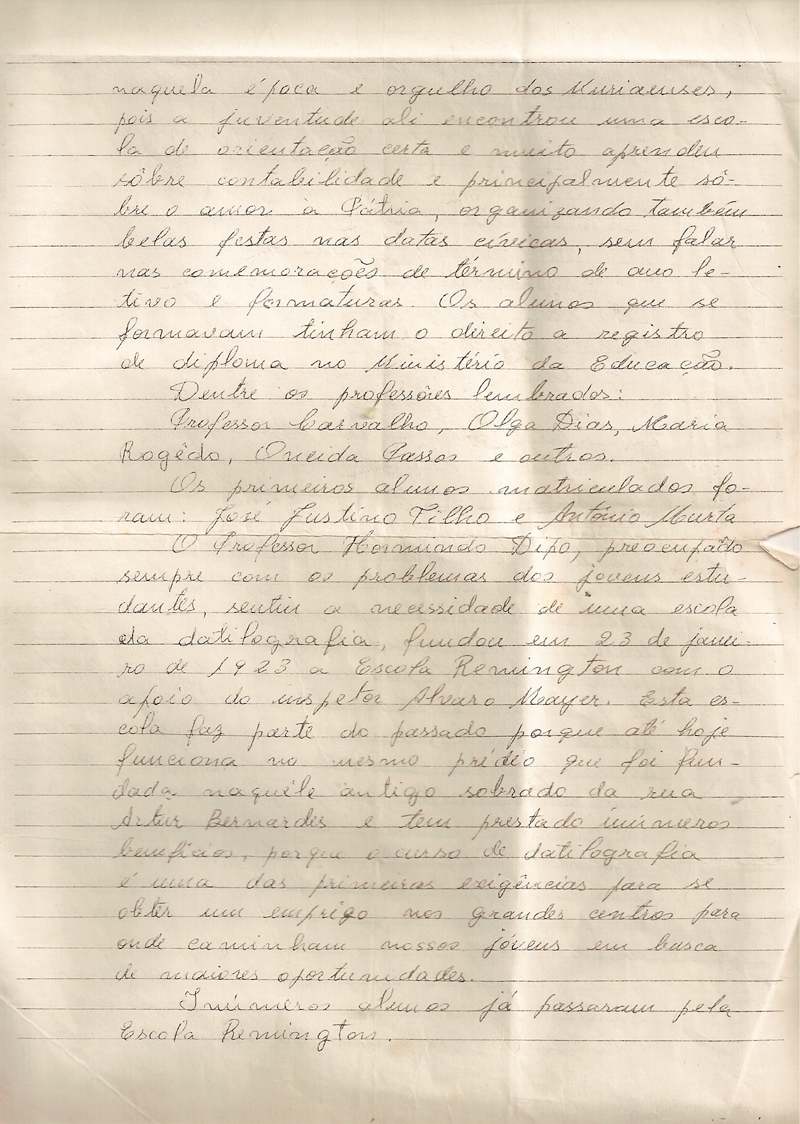 naquela época e orgulho dos Muriaenses,
pois a juventude ali encontrou uma esco-
la de orientação certa e muito aprendeu
sôbre contabilidade e principalmente sô-
bre o amor à Pátria, organizando também
belas festas nas datas cívicas, sem falar
nas comemorações de término de ano le-
tivo e formaturas. Os alunos que se
formavam tinham o direito a registro
de diploma no Ministério da Educação.
Dentre os professôres lembrados:
Professor Carvalho, Olga Dias, Maria
Rogêdo, Oneida Passos e outros.
Os primeiros alunos matriculados fo-
ram: José Justino Filho e Antônio Murta
O Professor Hormindo Dipo, preocupado
sempre com os problemas dos jovens estu-
dantes, sentiu a necessidade de uma escola
da datilografia, fundou em 23 de janei-
ro de 1923 a Escola Remington com o
apoio do inspetor Alvaro Mayer. Esta es-
cola faz parte do passado porque até hoje
funciona no mesmo prédio que foi fun-
dada naquêle antigo sobrado da rua
Artur Bernardes e tem prestado inúmeros
benefícios, porque o curso de datilografia
é uma das primeiras exigências para se
obter um emprêgo nos grandes centros para
onde caminham nossos jóvens em busca
de maiores oportunidades.
Inúmeros alunos já passaram pela
Escola Remington.